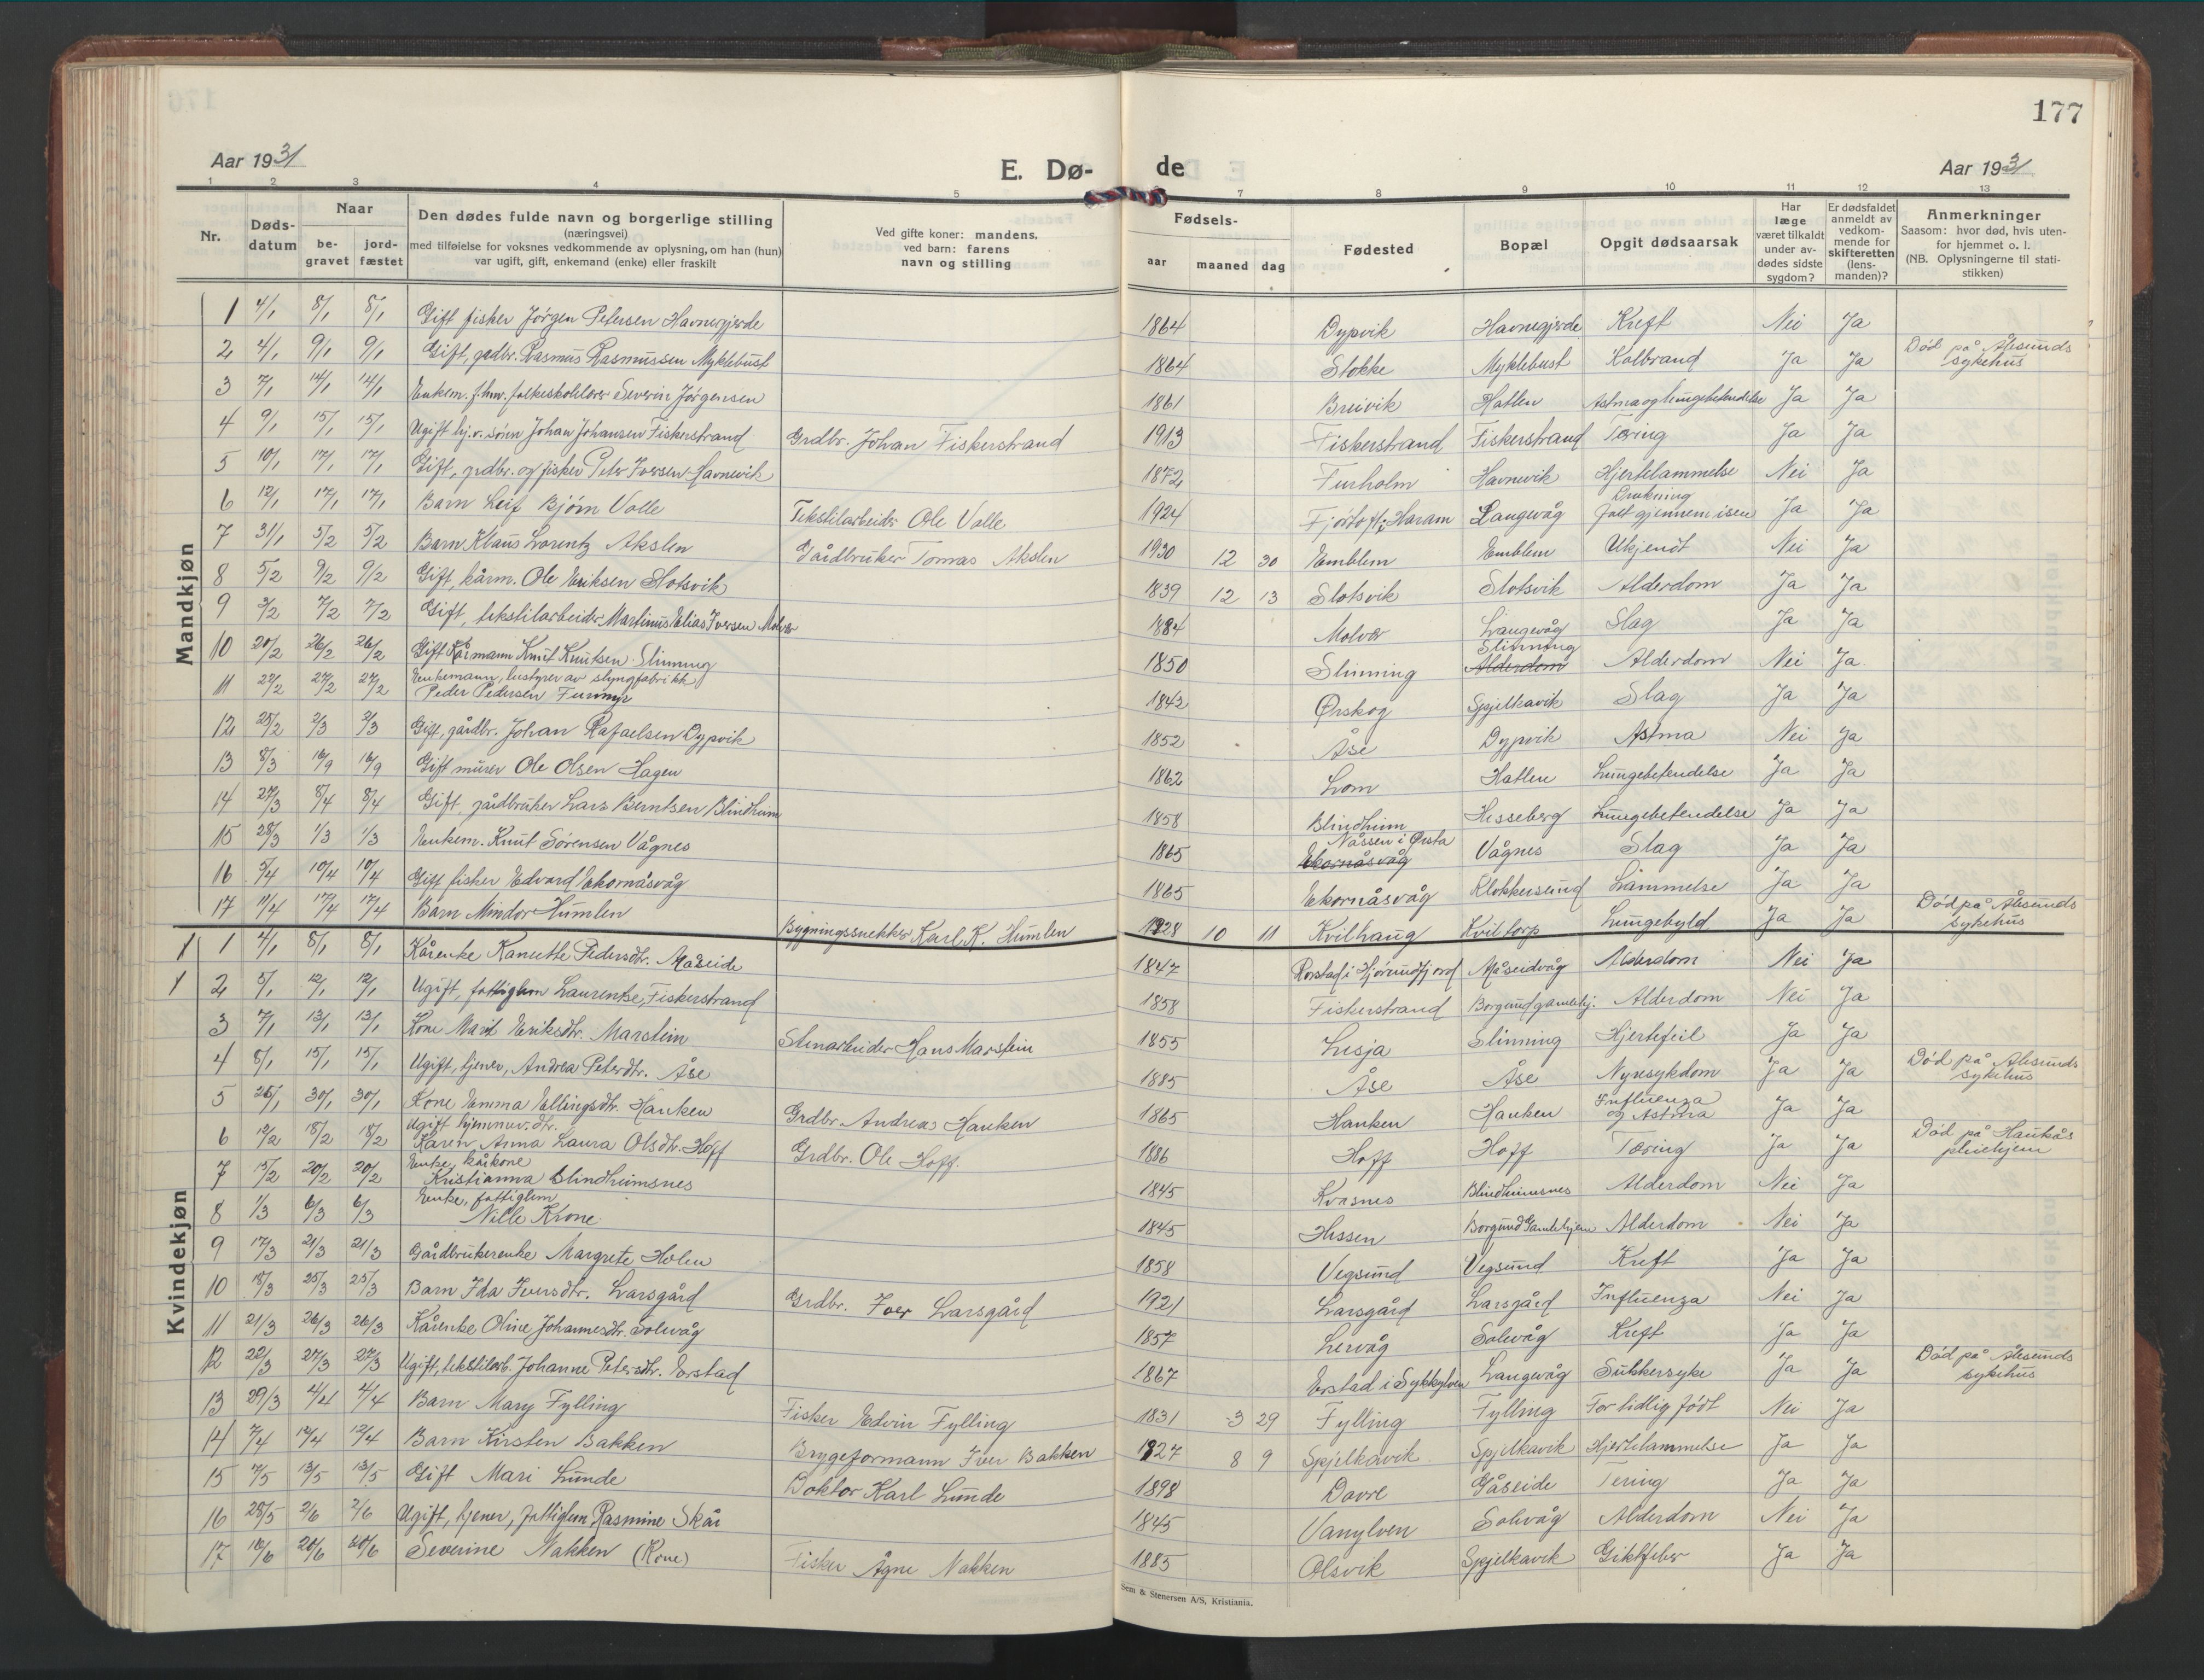 177
Aar 1931
E. Dø-
de
Aar 1931
1 2 3 4 5 7 8 9 10 11 12 13
Nr.
Døds-
datum
Naar
be-
gravet
jord-
fæstet
Den dødes fulde navn og borgerlige stilling
(næringsvei)
med tilføielse for voksnes vedkommende av oplysning, om han (hun)
var ugift, gift, enkemand (enke) eller fraskilt
Ved gifte koner: mandens,
ved barn: farens
navn og stilling
Fødsels-
aar maaned dag
Fødested
Bopæl
Opgit dødsaarsak
Har
læge
været tilkaldt
under av-
dødes sidste
sygdom?
Er dødsfaldet
anmeldt av
vedkom-
mende for
skifteretten
(lens-
manden)?
Anmerkninger
Saasom: hvor død, hvis uten-
for hjemmet o. l.
(NB. Oplysningerne til stati-
stikken)
Mandkjøn
1 4/1 8/1 8/1 Gift fisker Jørgen Petersen Havnegjerde 1864 Dypvik Havnegjerde Kreft Nei Ja
2 4/1 9/1 9/1 Gift, gadbr. Rasmus Rasmussen Myklebust 1864 Stokke Myklebust Kolbrand Ja Ja Død på Ålesunds sykehus
3 7/1 14/1 14/1 Enkem. f.hv. folkeskolelærer Severin Jørgensen 1861 Breivik Hatlen Astma og lungebetendelse Ja Ja
4 9/1 15/1 15/1 Ugift hj.v. sønn Johan Johansen Fiskerstrand Grdbr. Johan Fiskerstrand 1913 Fiskerstrand Fiskerstrand Tæring Ja Ja
5 10/1 17/1 17/1 Gift, grdbr. og fisker Peter Iversen Havnevik 1872 Furholm Havnevik Hjertelammelse Nei Ja
6 12/1 17/1 17/1 Barn Leif Bjørn Valle Tekstilarbeider Ole Valle 1924 Fjørtoft i Haram Langevåg Drukning falt gjennem isen Ja Ja
7 31/1 5/2 5/2 Barn Klaus Lorentz Akslen Gårdbruker Tomas Akslen 1930 12 30 Emblem Emblem Ukjendt Nei Ja
8 5/2 9/2 9/2 Gift, kårm. Ole Eriksen Slotsvik 1839 12 13 Slotsvik Slotsvik Alderdom Ja Ja
9 3/2 7/2 7/2 Gift, tekstilarbeider Martinus Elias Iversen Molvær 1884 Molvær Langevåg Slag Ja Ja
10 20/2 26/2 26/2 Gift Kårmann Knut Knutsen Slinning 1850 Slinning Slinning Alderdom Alderdom Nei Ja
11 22/2 27/2 27/2 Enkemann, bestyrer av slyngfabrikk Peder Pedersen Furmyr 1842 Ørskog Spjelkavik Slag Ja Ja
12 25/2 2/3 2/3 Gift, gårdbr. Johan Rafaelsen Dypvik 1852 Åse Dypvik Astma Nei Ja
13 8/3 16/9 16/9 Gift murer Ole Olsen Hagen 1862 Lom Hatlen Lungebetendelse Ja Ja
14 27/3 8/4 8/4 Gift gårdbruker Lars Berntsen Blindheim 1858 Blindheim Hesseberg Lungebetendelse Ja Ja
15 28/3 1/3 1/3 Enkem. Knut Sørensen Vågnes 1865 Nåssen i Ørsta Ekornåsvåg Vågnes Slag Ja Ja
16 5/4 10/4 10/4 Gift fisker Edvard Ekornåsvåg 1865 Ekornåsvåg Klokkersund Lammelse Ja Ja
17 11/4 17/4 17/4 Barn Mindor Humlen Bygningssnekker Karl K. Humlen 1928 10 11 Kvilhaug Kviltorp Lungebyld Ja Ja Død på Ålesunds sykehus
Kvindekjøn
1 4/1 8/1 8/1 Kårenke Kanutte Pedersdtr. Måseide 1847 Rorstad i Hjørundfjord Måseidvåg Alderdom Nei Ja
2 5/1 12/1 12/1 Ugift, fattiglem Laurentse, Fiskerstrand 1858 Fiskerstrand Borgund gamlehj. Alderdom Nei Ja
3 7/1 13/1 13/1 Kone Marit Eriksdtr. Marstein Stenarbeider Hans Marstein 1855 Lesja Slinning Hjertefeil Ja Ja
4 8/1 15/1 15/1 Ugift, tjener, Andrea Petersdtr. Åse 1885 Åse Åse Nyresykdom Ja Ja Død på Ålesunds sykehus
5 26/1 30/1 30/1 Kone Emma Ellingsdtr. Hanken Grdbr. Andreas Hanken 1865 Hanken Hanken Influenza og Astma Ja Ja
6 12/2 18/2 18/2 Ugift hjemmev.dtr. Karen Anna Laura Olsdtr. Hoff Grdbr. Ole Hoff. 1886 Hoff Hoff Tæring Ja Ja Død på Haukås pleiehjem
7 15/2 20/2 20/2 Enke, kårkone Kristianna Blindheimsnes 1845 Kvasnes Blindheimsnes Alderdom Nei Ja
8 1/3 6/3 6/3 Enke, fattiglem Nille Krone 1845 Hessen Borgund Gamlehjem Alderdom Nei Ja
9 17/3 21/3 21/3 Gårdbrukerenke Margrete Holen 1858 Vegsund Vegsund Kreft Ja Ja
10 18/3 25/3 25/3 Barn Ida Iversdtr. Larsgård Grdbr. Iver Larsgård 1921 Larsgård Larsgård Influenza Nei Ja
11 21/3 26/3 26/3 Kårenke Oline Johannesdtr. Solevåg 1857 Lervåg Solevåg Kreft Ja Ja
12 22/3 27/3 27/3 Ugift, tekstilarb. Johanne Petersdtr. Erstad 1867 Erstad i Sykkylven Langevåg Sukkersyke Ja Ja Død på Ålesunds sykehus
13 29/3 4/4 4/4 Barn Mary Fylling Fisker Edvin Fylling 1831 3 29 Fylling Fylling For tidlig født Nei Ja
14 7/4 12/4 12/4 Barn Kirsten Bakken Bryggeformann Iver Bakken 1927 8 9 Spjelkavik Spjelkavik Hjertelammelse Ja Ja
15 7/5 13/5 13/5 Gift Mari Lunde Doktor Karl Lunde 1898 Dovre Gåseide Tering Ja Ja
16 28/5 2/6 2/6 Ugift, tjener, fattiglem Rasmine Skår 1845 Vanylven Solevåg Alderdom Nei Ja
17 16/6 20/6 20/6 Severine Nakken (Kone) Fisker Agne Nakken 1885 Olsvik Spjelkavik Giktfeber Ja Ja
Sem & Stenersen A/S, Kristiania.